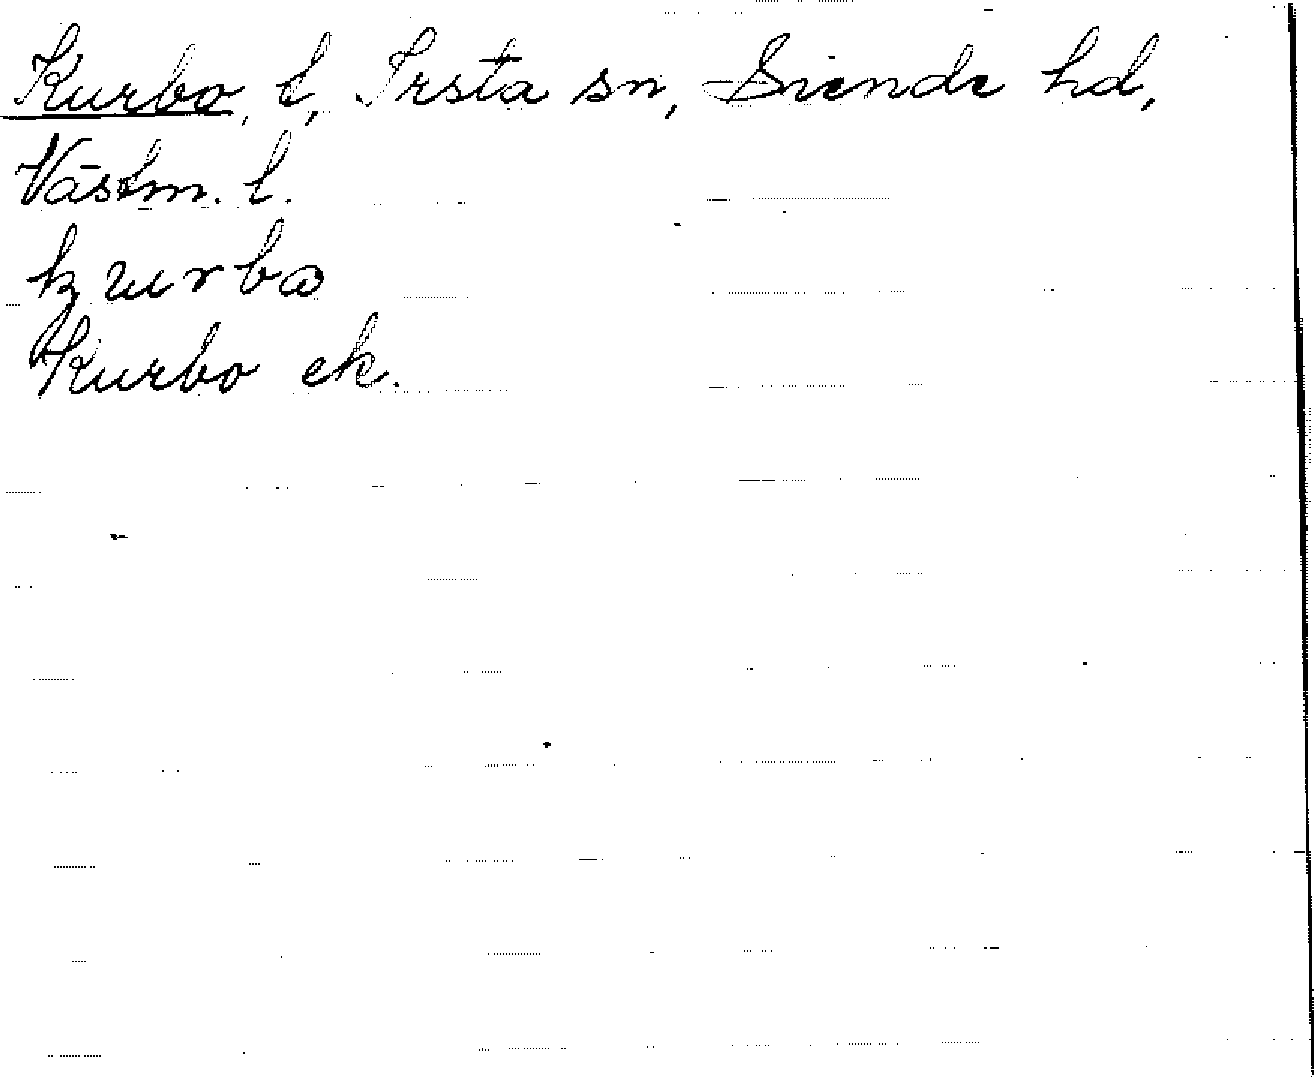 Kurbo, l, Irsta sn, Siende hd,
Västm. l.
kurbo
Kurbo ek.